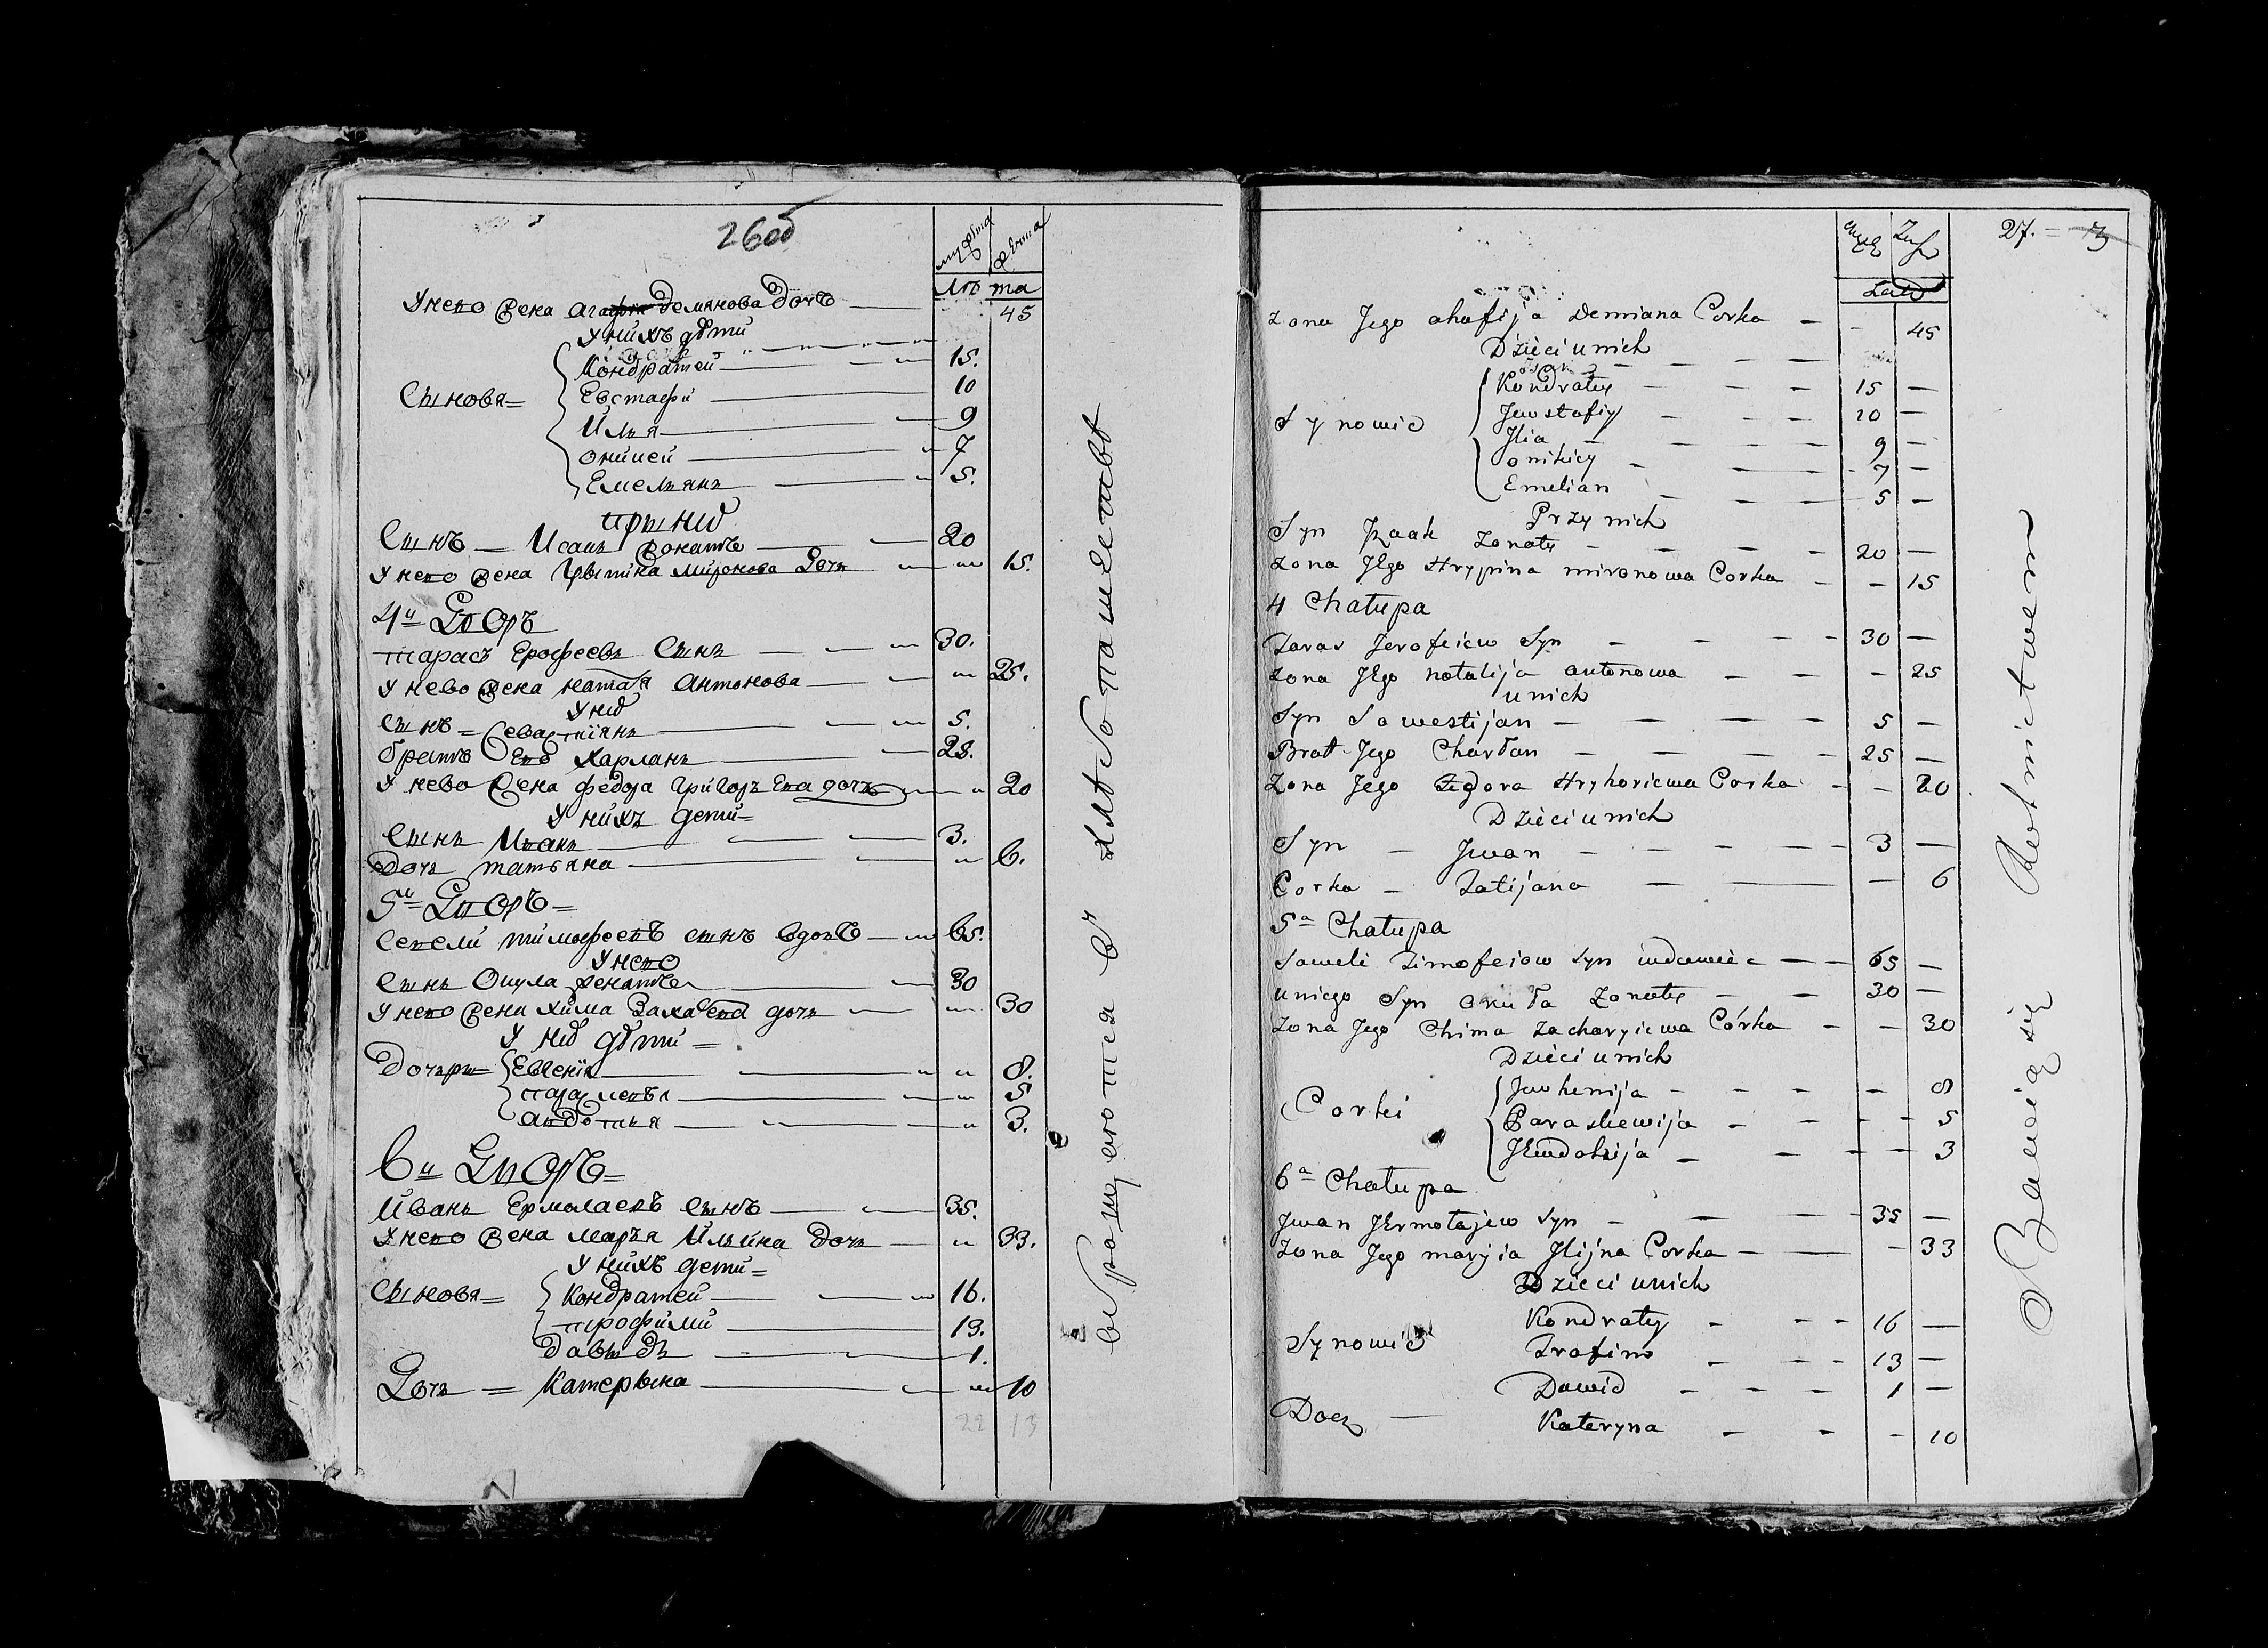 26об
лѣта
У нево жена Агафия Демянова дочь 45
У нихъ дѣти
Кондратей 15.
Сыновя = Евстафи 10
Илья 9
Оникей 7
Емельянъ 5.
При нихъ
Сынъ — Исакъ женатъ 20
У нево жена Грыпина Миронова дочь 15.
4й Дворъ
Тарасъ Ерофеевъ сынъ 30.
У нево жена Наталя Антонова 25.
У них
Сынъ = Севастіянъ 5.
братъ Ево Харланъ 25.
У нево жена Федора Григорьева дочь 20
У нихъ дети =
Сынъ Иванъ 3.
Дочь татьяна 6.
5й Дворъ =
Савели тимофеевъ сынъ вдовъ 65.
У нево
Сынъ Окула женатъ 30
У нево жена Хима Захарева дочь 30
У них дѣти =
Дочери = Евгения 8.
парасковья 5
авдотья 3.
6й Дворъ =
Иванъ Ермолаевъ сынъ 35.
У нево жена Марья Ильина дочь 33.
У нихъ дети =
Сыновя = Кондратей 16.
трофими 13.
давыдъ 1.
Дочь = Катерына 10
22 13
упражняются въ хлѣбопашествѣ
27.
Lata
Zona Jego ahafija Demiana Corka — - 45
Dzieci u nich
Kondraty 15 —
Synowie Jewstafiy 10 —
Jlia 9 —
onikiey 7 —
Emelian 5 —
Przy nich
Syn Jzaak Zonaty 20 —
Zona JEgo Hrypina mironowa Corka - 15
4 Chałupa
Taras Jerofeiew Syn 30 —
Zona JEgo natalija antonowa - 25
u nich
Syn Sawestijan 5 —
Brat Jego Charłan 25 —
Zona Jego Fedora Hryhoriewa Corka - 20
Dzieci u nich
Syn — Jwan 3 —
Corka — Tatijana — 6
5a Chałupa
Saweli Timofeiow Syn wdowiec 65 —
u niego Syn Okuła Zonaty 30 —
Zona Jego Chima Zacharyiewa Córka - 30
Dzieci u nich
Jewhenija 8
Corki Paraskewija 5
JEwdokija 3
6a Chałupa
Jwan JErmołajew Syn 35 —
Zona Jego maryia Jlijna Corka - 33
Dzieci u nich
Kondraty 16 —
Synowie Trofim 13 —
Dawid 1 —
Docz — Kateryna - 10
Bawią się Rolnictwem